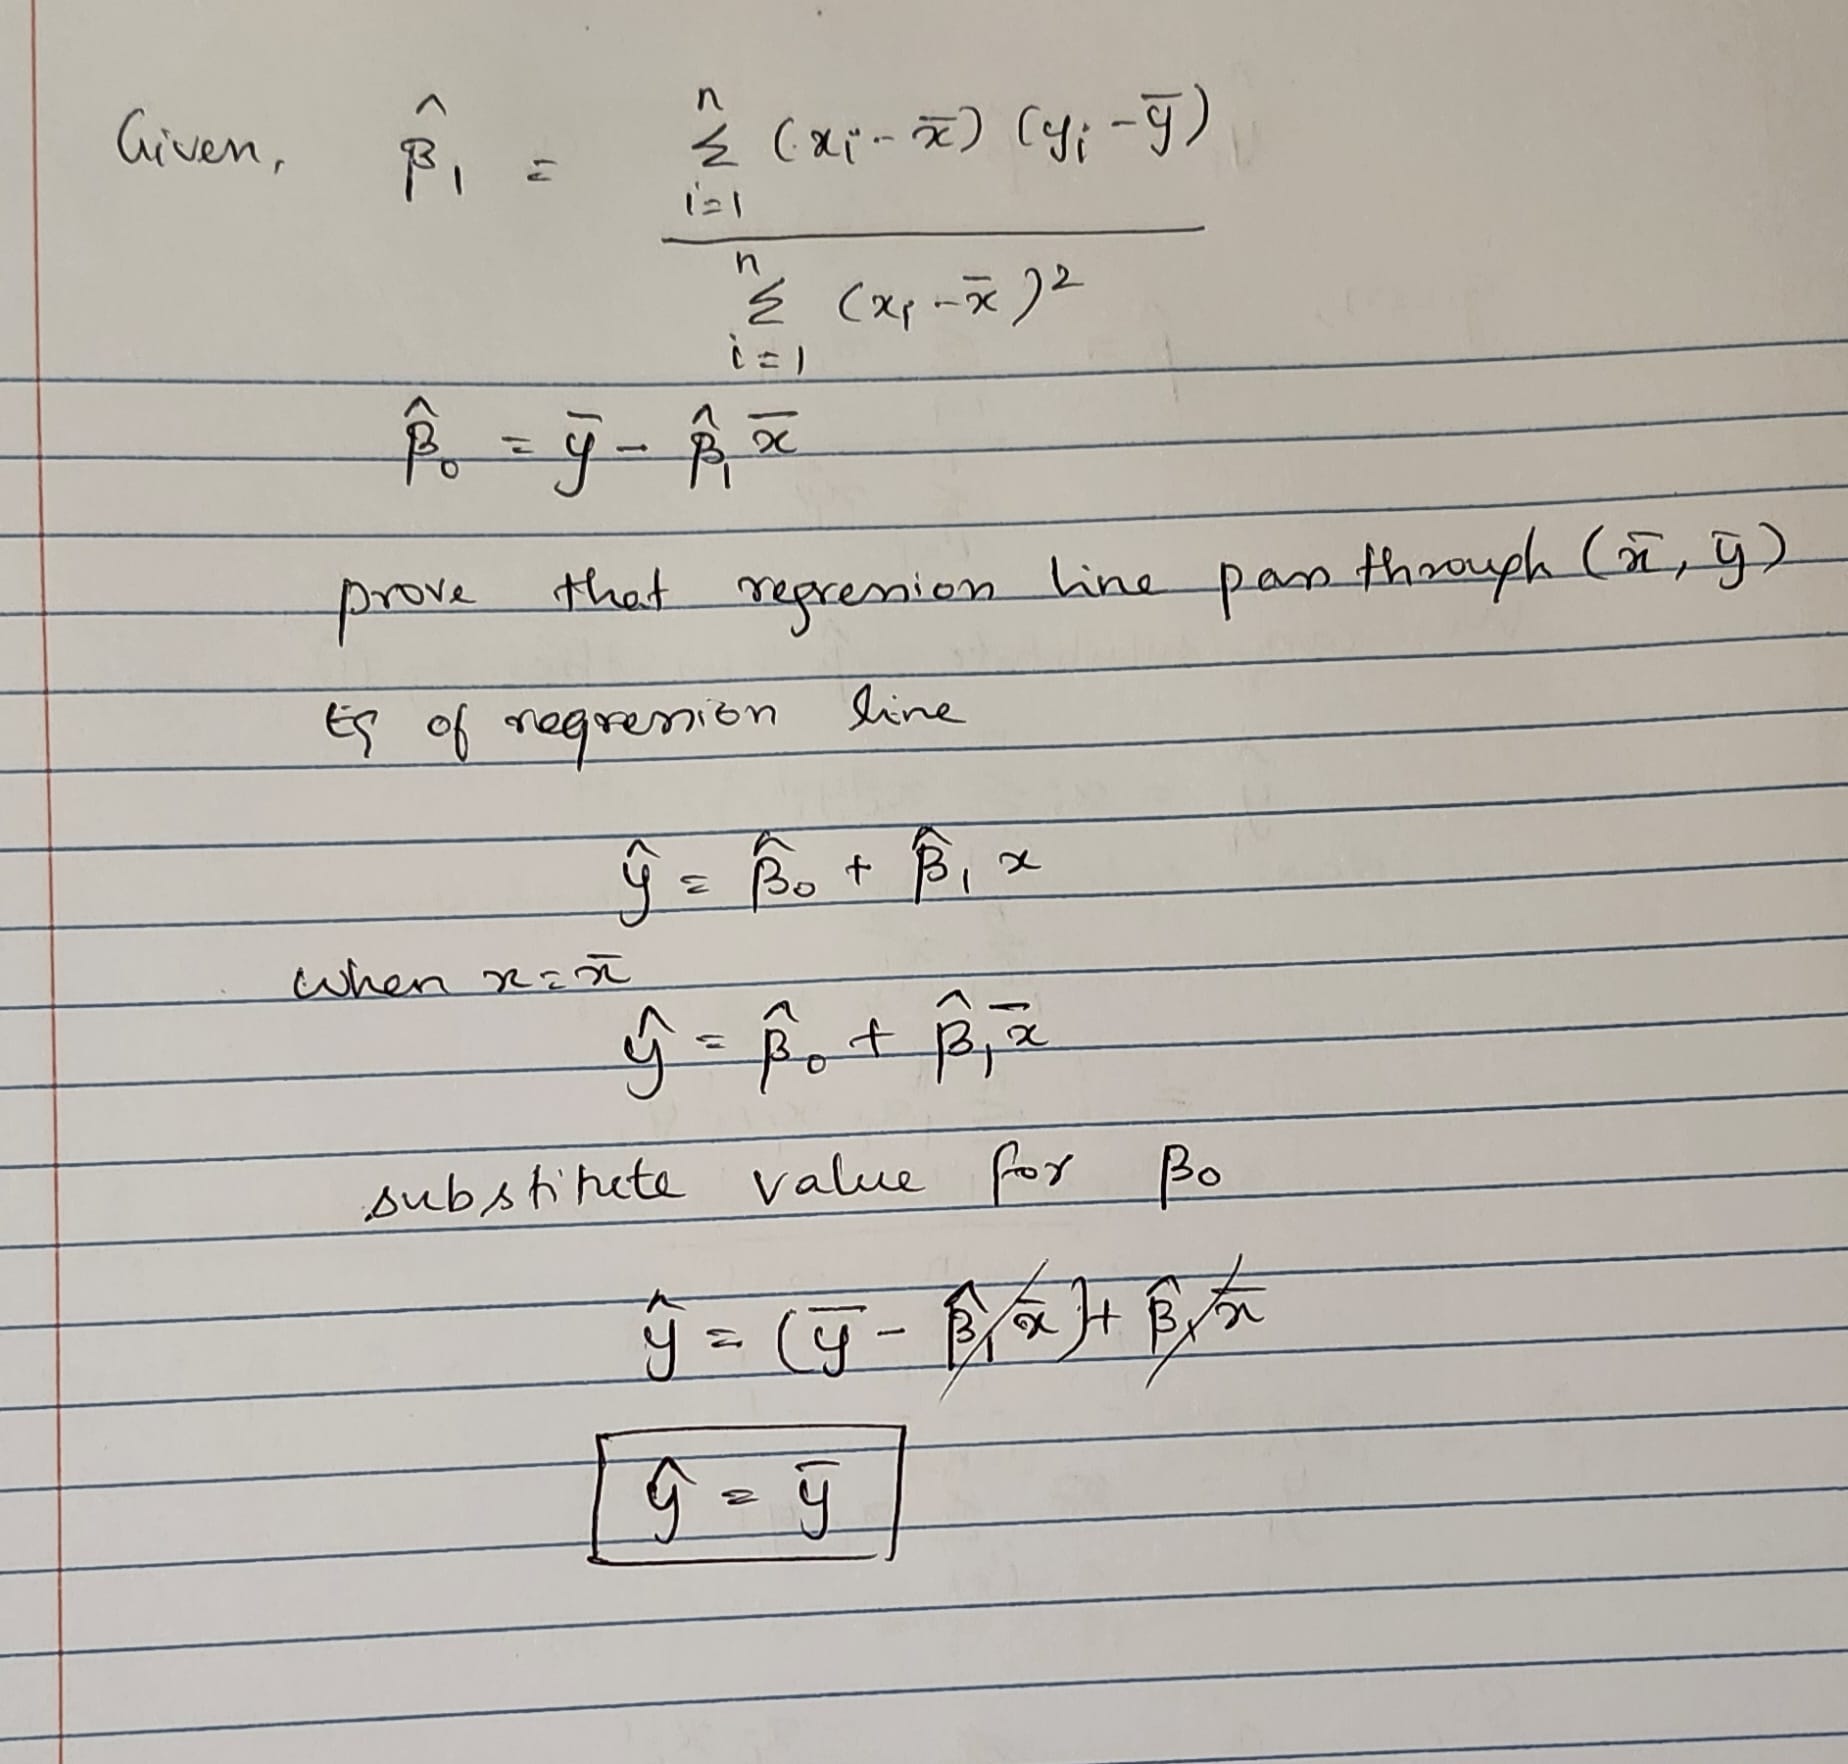 Given, β̂₁ = Σⁿᵢ₌₁ (xᵢ - x̄) (yᵢ - ȳ) / Σⁿᵢ₌₁ (xᵢ - x̄)²
β̂₀ = ȳ - β̂₁ x̄
prove that regression line pass through (x̄, ȳ)
Eq of regression line
ŷ = β̂₀ + β̂₁ x
when x = x̄
ŷ = β̂₀ + β̂₁ x̄
substitute value for β₀
ŷ = (ȳ - β̂₁ x̄) + β̂₁ x̄
ŷ = ȳ